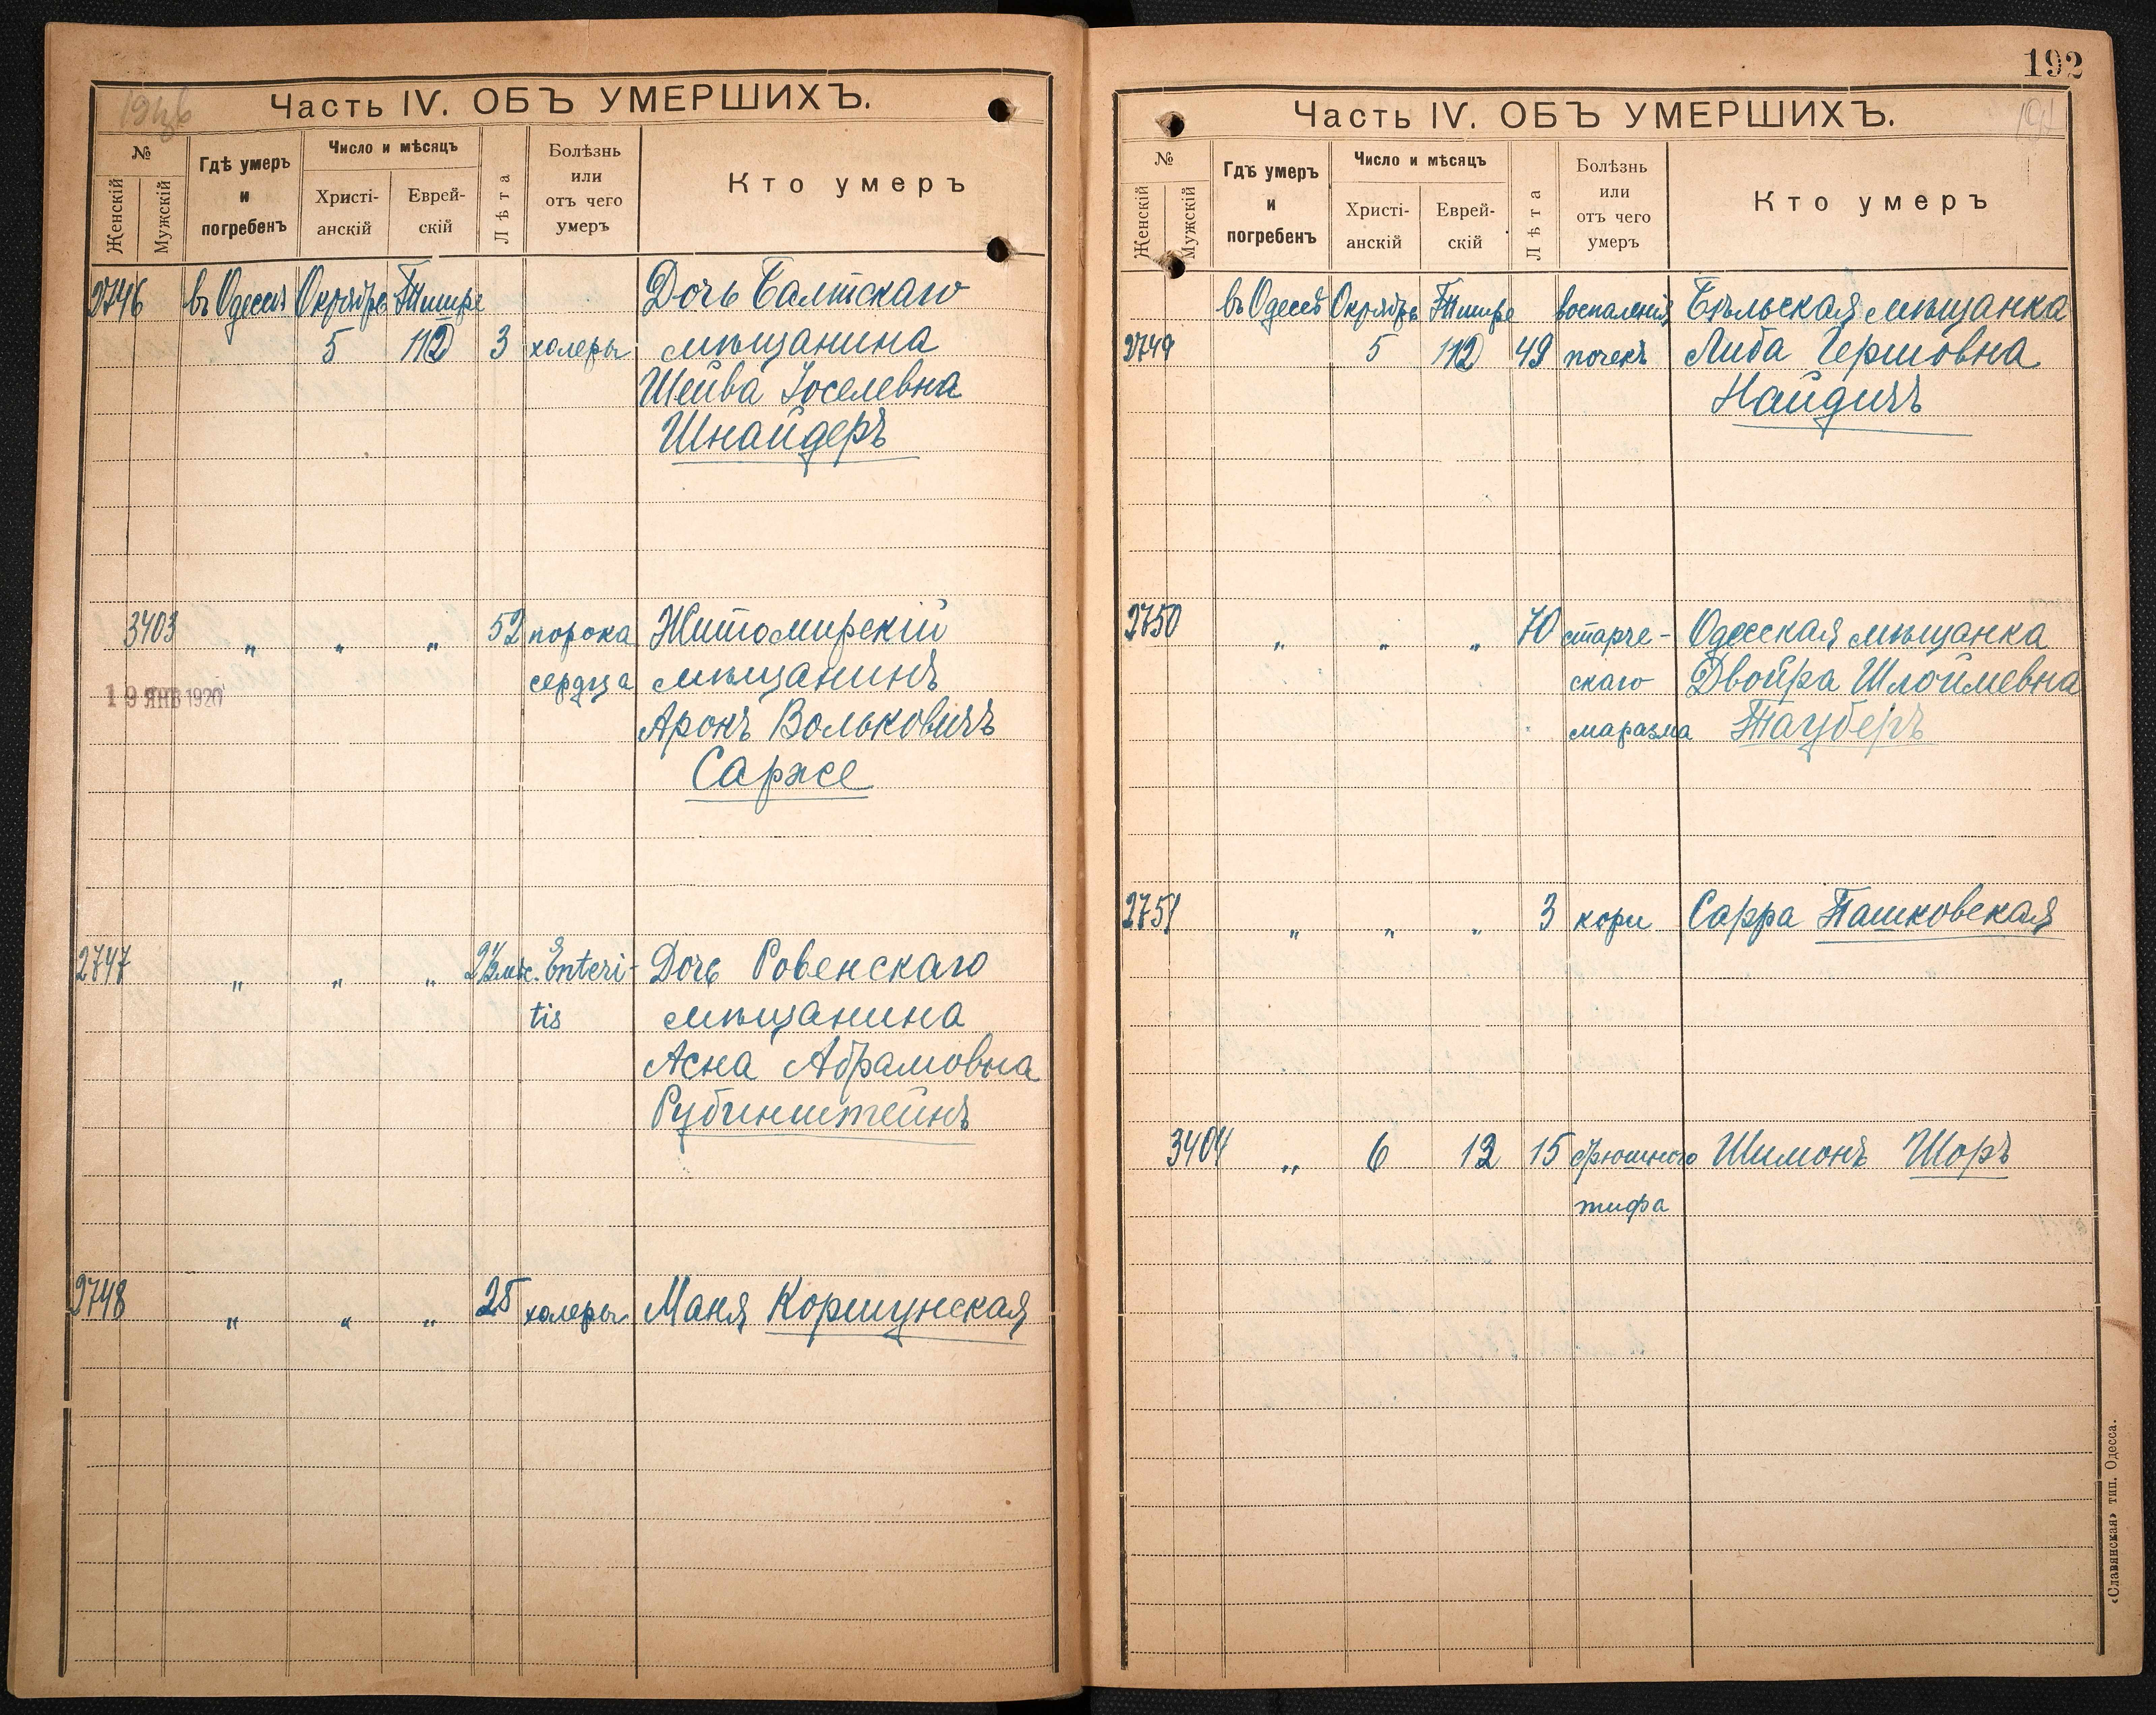 Часть IV. ОБЪ УМЕРШИХЪ.
№
Женскій
Мужскій
Гдѣ умеръ
и
погребенъ
Число и мѣсяцъ
Христі-
анскій
Еврей-
скій
Лѣта
Болѣзнь
или
отъ чего
умеръ
Кто умеръ
2746 въ Одессѣ Октябрь Тишре Дочь Балтскаго
5 112 3 холеры мѣщанина
Шейва Іоселевна
Шнайдеръ
3403 " " " 52 порока Житомирскій
сердца мѣщанинъ
19 ЯНВ 1920
Аронъ Вольковичъ
Сарже
2747 " " " 2 1/2 мѣс. Enteri- Дочь Ровенскаго
tis мѣщанина
Асна Абрамовна
Рубинштейнъ
2748 " " " 25 холеры Маня Коршунская
192
Часть IV. ОБЪ УМЕРШИХЪ.
№
Женскій
Мужскій
Гдѣ умеръ
и
погребенъ
Число и мѣсяцъ
Христі-
анскій
Еврей-
скій
Лѣта
Болѣзнь
или
отъ чего
умеръ
Кто умеръ
въ Одессѣ Октябрь Тишре воспаленія Бѣльская мѣщанка
2749 5 112 49 почекъ Либа Гершовна
Найдичъ
2750 " " " 70 старче- Одесская мѣщанка
скаго Двойра Шлоймевна
маразма Тауберъ
2751 " " " 3 кори Сарра Пашковская
3404 " 6 13 15 брюшного Шимонъ Шоръ
тифа
«Славянская» тип. Одесса.